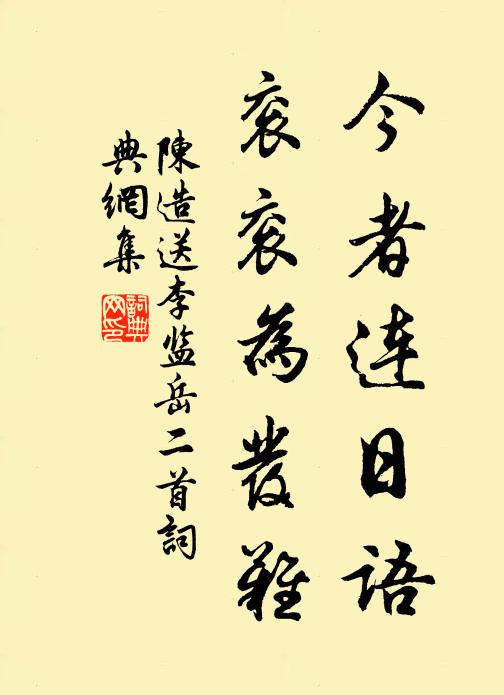 今者連日語
袞袞為發難
陳造送李監岳二首詞
典網集
詞典網印